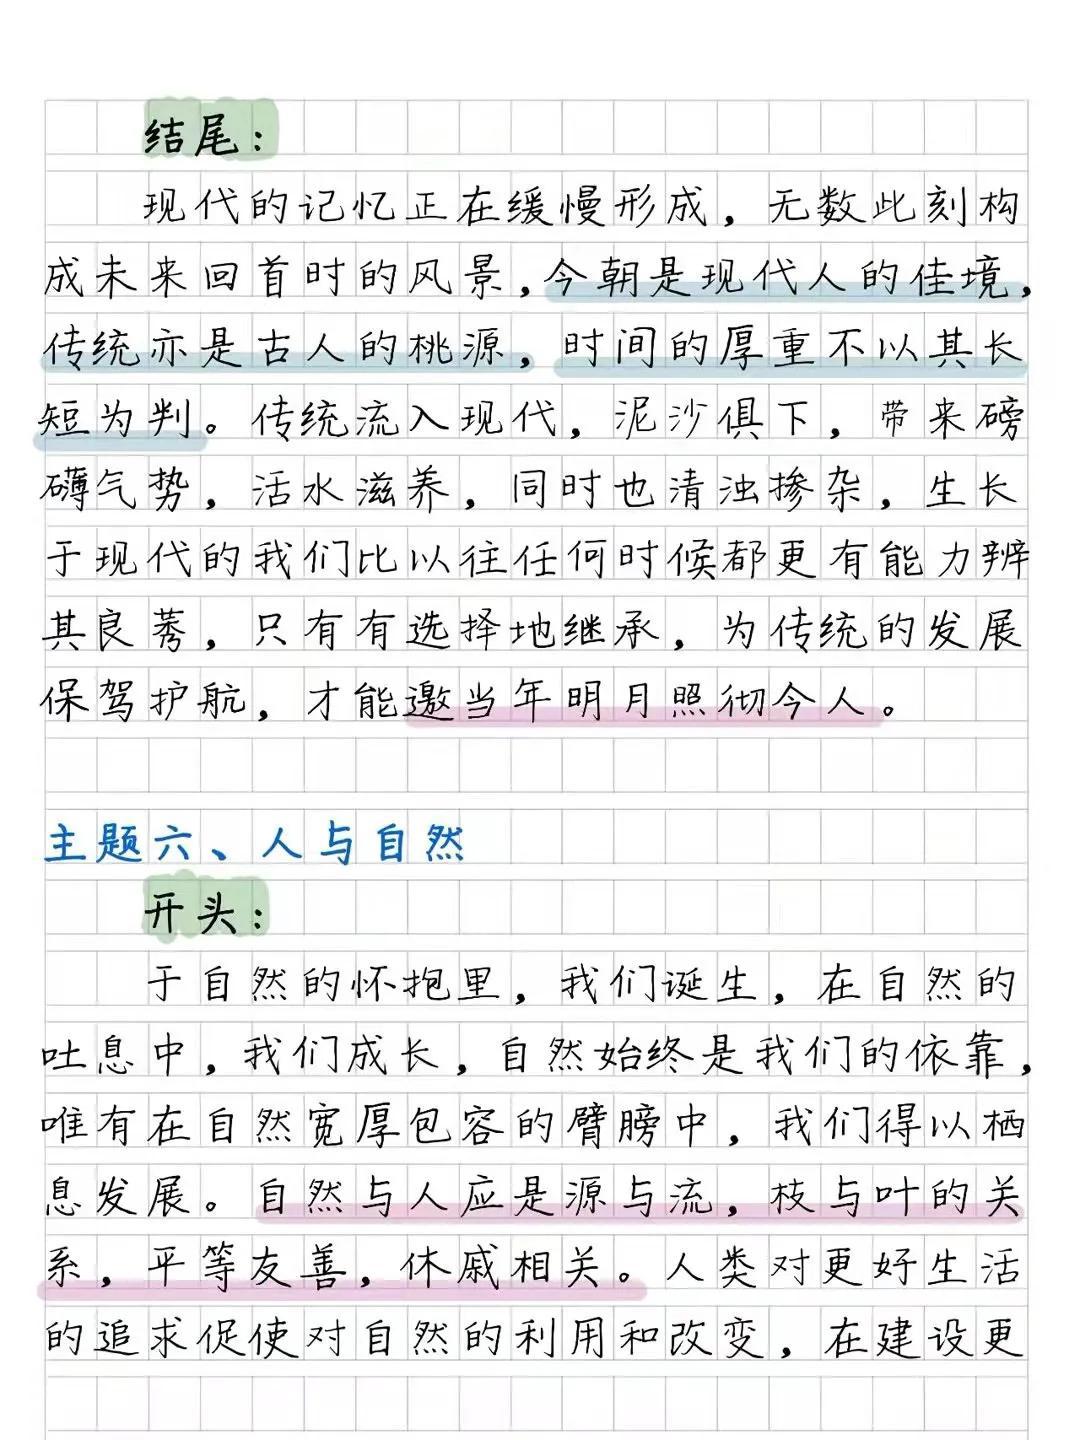 结尾：
现代的记忆正在缓慢形成，无数此刻构
成未来回首时的风景，今朝是现代人的佳境，
传统亦是古人的桃源，时间的厚重不以其长
短为判。传统流入现代，泥沙俱下，带来磅
礴气势，活水滋养，同时也清浊掺杂，生长
于现代的我们比以往任何时候都更有能力辨
其良莠，只有有选择地继承，为传统的发展
保驾护航，才能邀当年明月照彻今人。
主题六、人与自然
开头：
于自然的怀抱里，我们诞生，在自然的
吐息中，我们成长，自然始终是我们的依靠，
唯有在自然宽厚包容的臂膀中，我们得以栖
息发展。自然与人应是源与流，枝与叶的关
系，平等友善，休戚相关。人类对更好生活
的追求促使对自然的利用和改变，在建设更